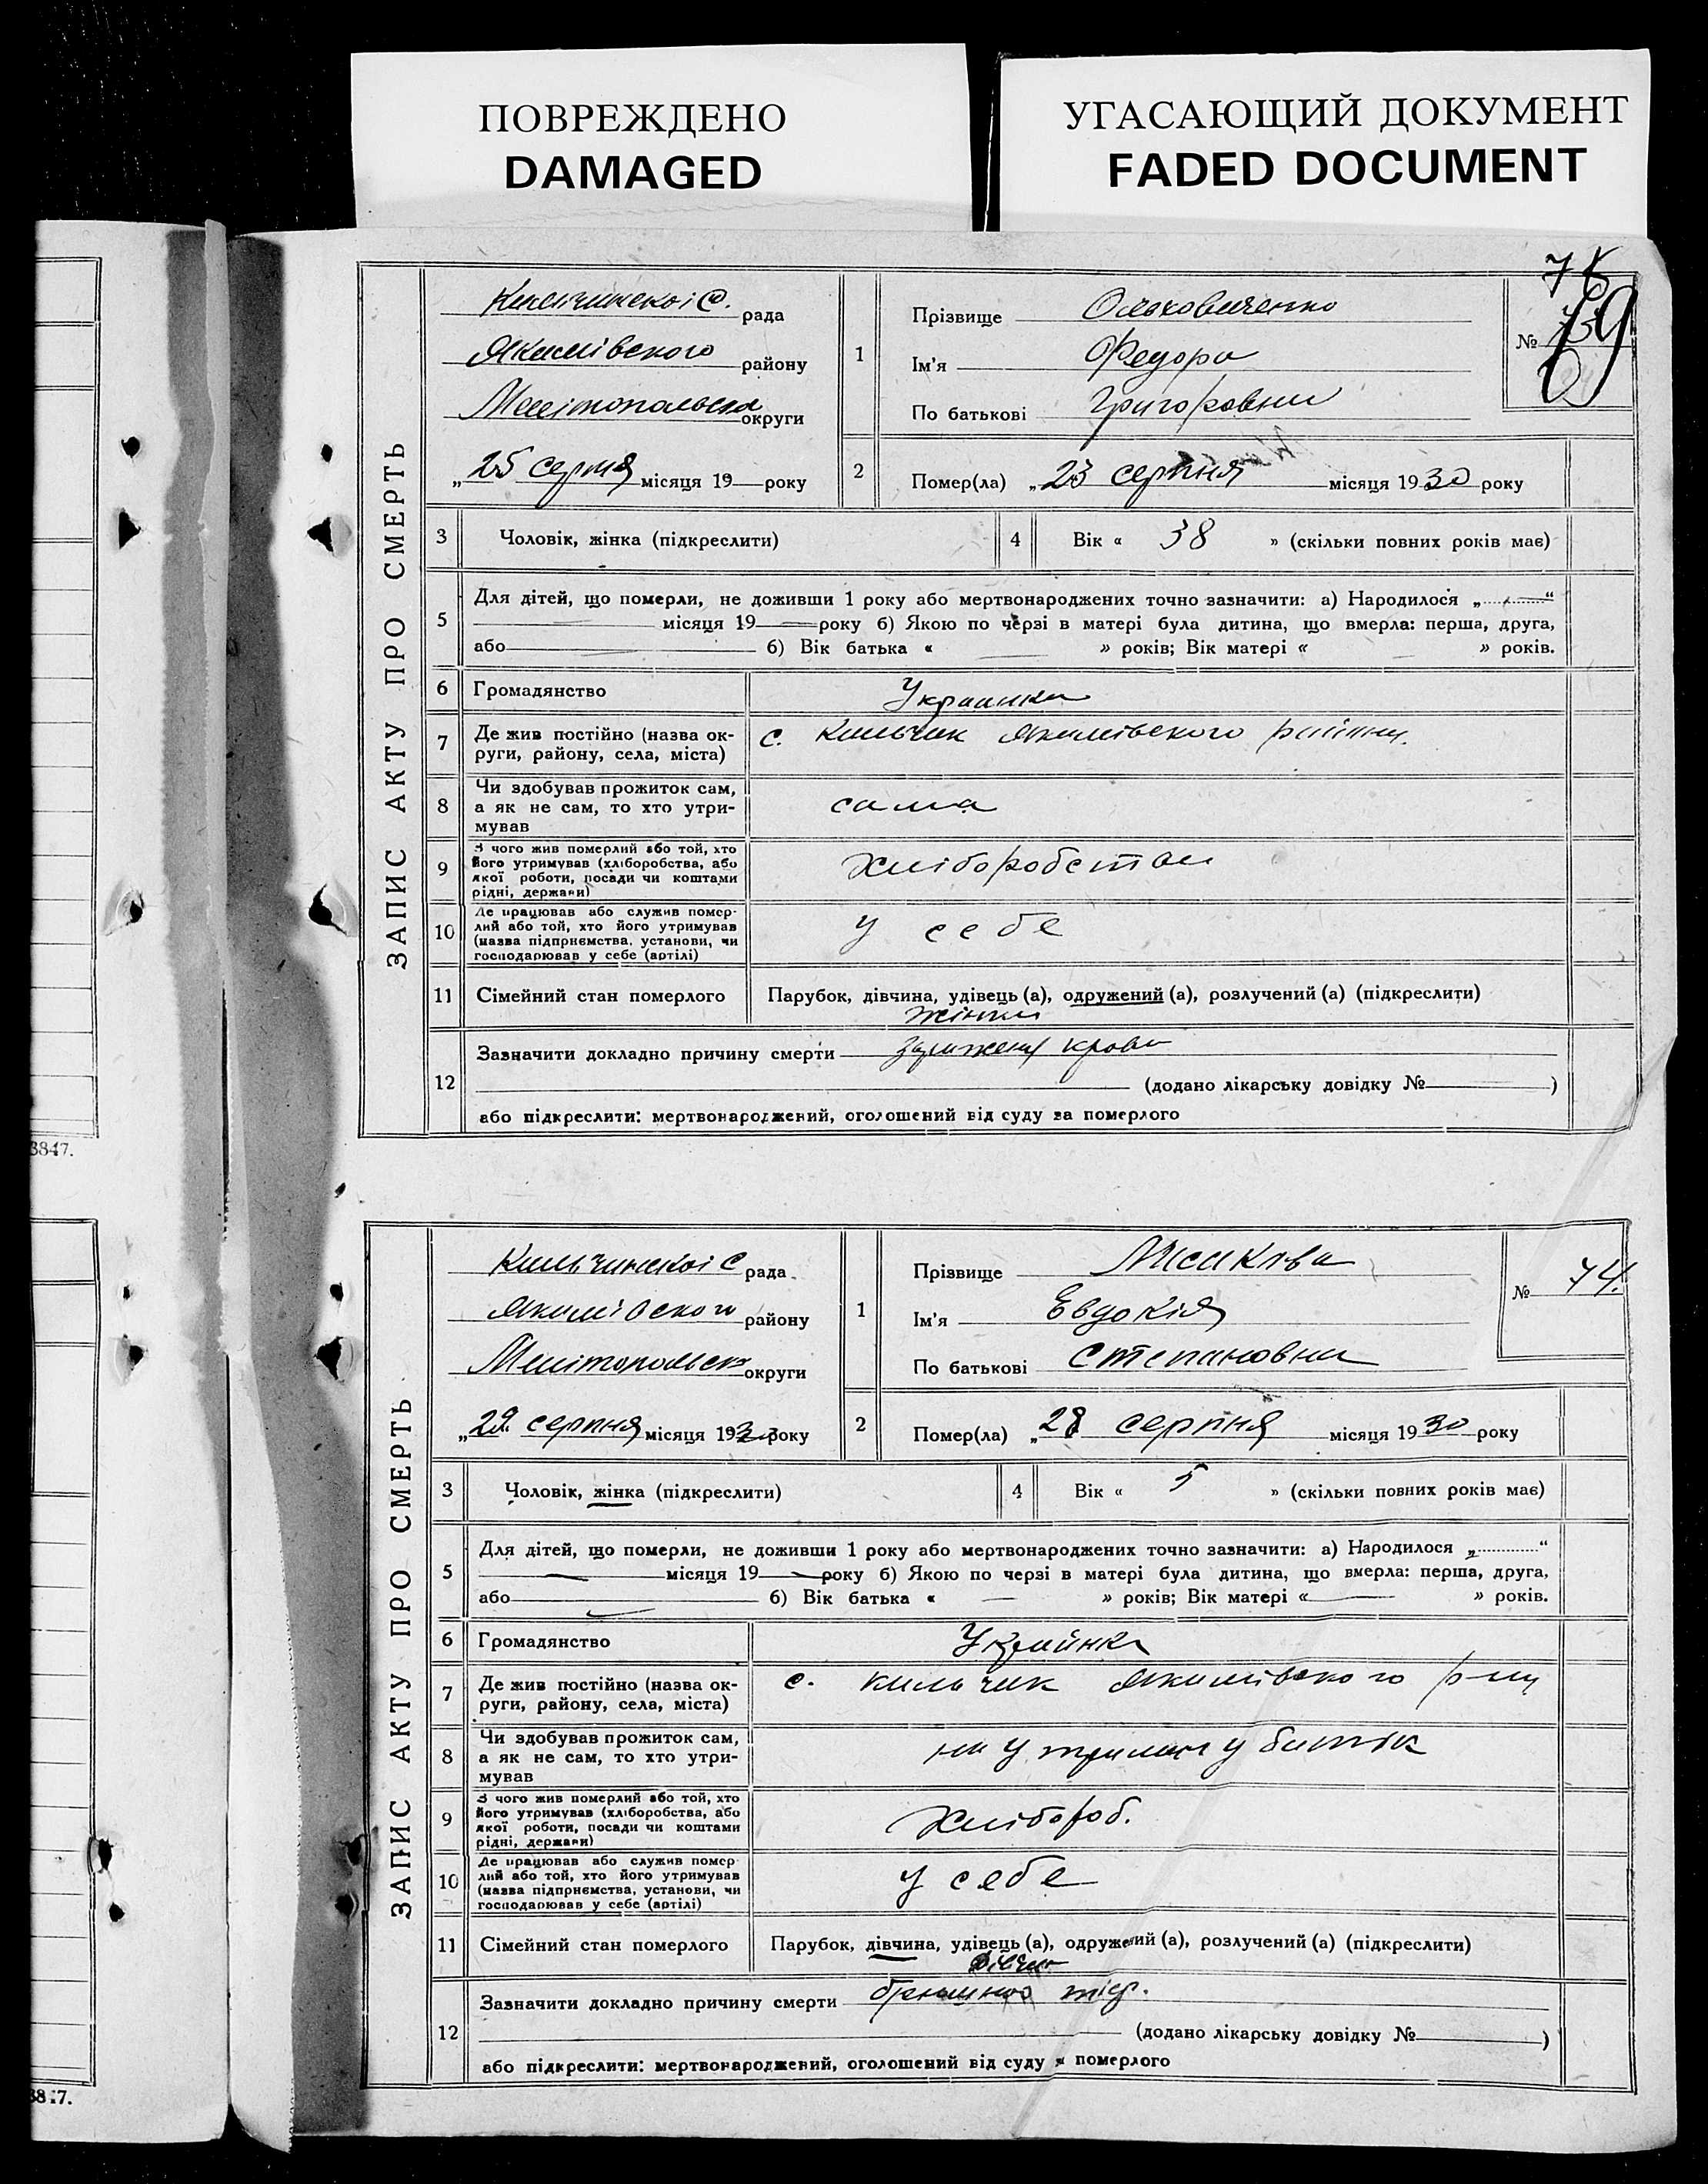 ПОВРЕЖДЕНО
DAMAGED
УГАСАЮЩИЙ ДОКУМЕНТ
FADED DOCUMENT
3847.
ЗАПИС АКТУ ПРО СМЕРТЬ
рада
Якимівского району
Мелітопольська округи
„25 серпня місяця 19 року
1
Прізвище Ольховиченко
Ім'я Федора
По батькові Григоровна
№
2
Помер(ла) „23 серпня місяця 1930 року
3
Чоловік, жінка (підкреслити)
4
Вік « 38 » (скільки повних років має)
5
Для дітей, що померли, не доживши 1 року або мертвонароджених точно зазначити: а) Народилося „ “
місяця 19 року б) Якою по черзі в матері була дитина, що вмерла: перша, друга,
або б) Вік батька « » років; Вік матері « » років.
6
Громадянство
Украинка
7
Де жив постійно (назва ок-
руги, району, села, міста)
с. Кильчик Якимівского району.
8
Чи здобував прожиток сам,
а як не сам, то хто утри-
мував
сама
9
З чого жив померлий або той, хто
його утримував (хліборобства, або
якої роботи, посади чи коштами
рідні, держави)
Хліборобства
10
Де працював або служив помер-
лий або той, хто його утримував
(назва підприємства, установи, чи
господарював у себе (артілі)
у себе
11
Сімейний стан померлого
Парубок, дівчина, удівець (а), одружений (а), розлучений (а) (підкреслити)
12
Зазначити докладно причину смерти зараження крови
(додано лікарську довідку № )
або підкреслити: мертвонароджений, оголошений від суду за померлого
3847.
ЗАПИС АКТУ ПРО СМЕРТЬ
Кильчинскоі С рада
Якимівского району
Мелітопольск округи
„29 серпня місяця 1930 року
1
Прізвище
Ім'я Евдокія
По батькові Степановна
№ 74.
2
Помер(ла) „28 серпня місяця 1930 року
3
Чоловік, жінка (підкреслити)
4
Вік « 5 » (скільки повних років має)
5
Для дітей, що померли, не доживши 1 року або мертвонароджених точно зазначити: а) Народилося „ “
місяця 19 року б) Якою по черзі в матері була дитина, що вмерла: перша, друга,
або б) Вік батька « » років; Вік матері « » років.
6
Громадянство
Українка
7
Де жив постійно (назва ок-
руги, району, села, міста)
с. Кильчик Якимівского р-ну
8
Чи здобував прожиток сам,
а як не сам, то хто утри-
мував
на у
9
З чого жив померлий або той, хто
його утримував (хліборобства, або
якої роботи, посади чи коштами
рідні, держави)
Хлібороб.
10
Де працював або служив помер-
лий або той, хто його утримував
(назва підприємства, установи, чи
господарював у себе (артілі)
у себе
11
Сімейний стан померлого
Парубок, дівчина, удівець (а), одружений (а), розлучений (а) (підкреслити)
12
Зазначити докладно причину смерти тіф.
(додано лікарську довідку № )
або підкреслити: мертвонароджений, оголошений від суду за померлого